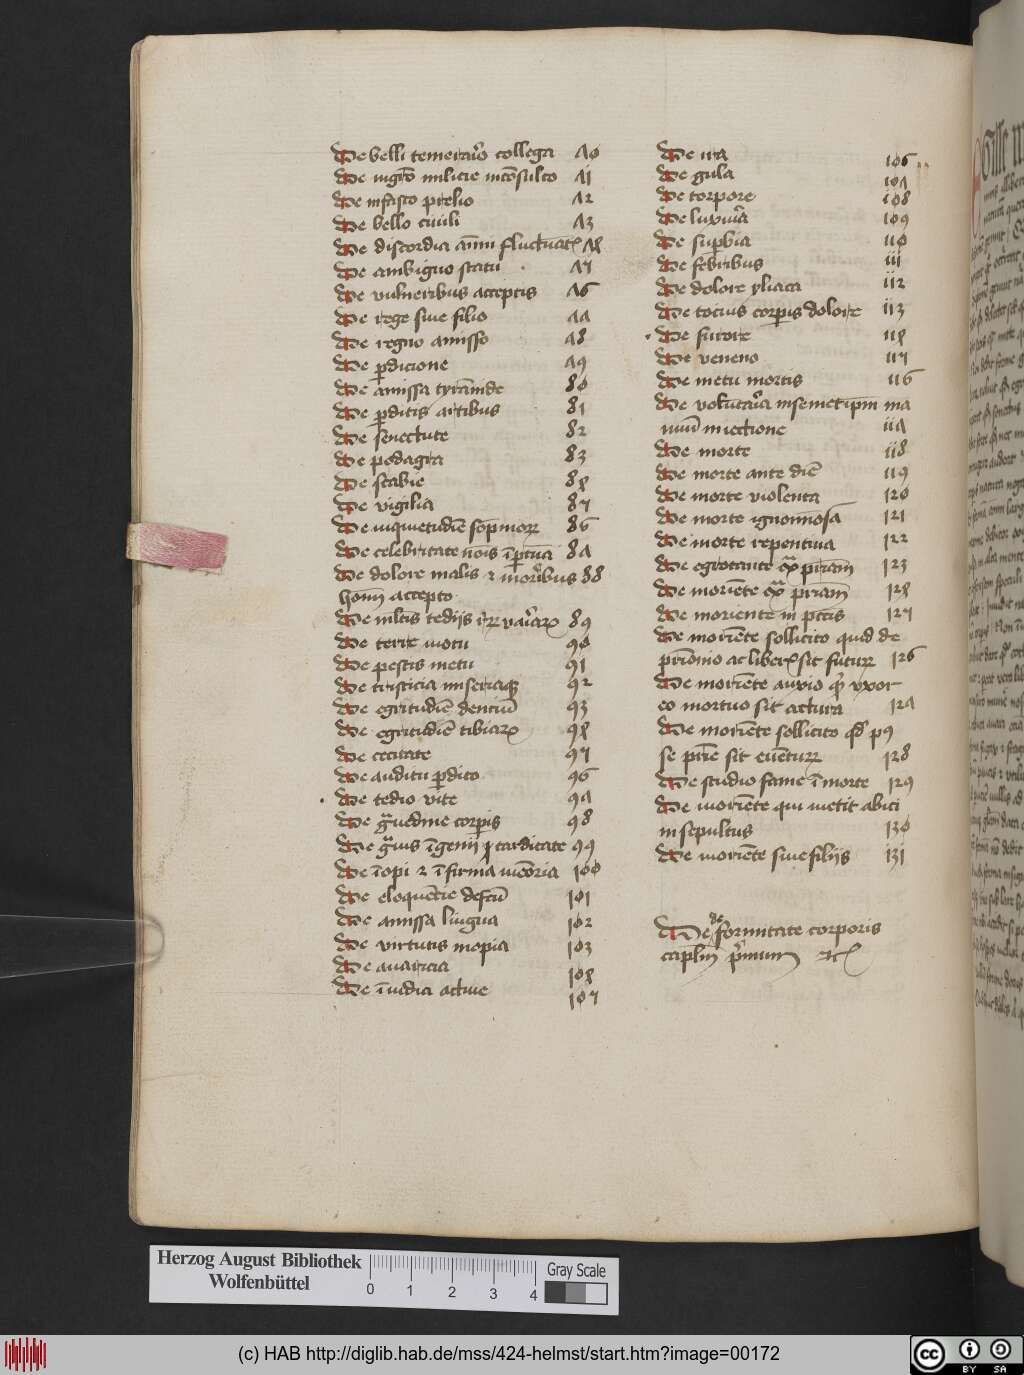 De belli temerario collega 70
De nigro milicie inconsulto 71
De infasto prelio 72
De bello civili 73
De discordia animi fluctuantis 74
De ambiguo statu 75
De vulneribus acceptis 76
De rege sive filio 77
De regno amisso 78
De perdicione 79
De amissa tyrannide 80
De perditis artibus 81
De senectute 82
De podagra 83
De scabie 84
De vigilia 85
De inquietudine sompniorum 86
De celebritate nominis importuna 87
De dolore malis et moribus 88
homini accepto
De multis tediis rerum variarum 89
De terre motu 90
De pestis metu 91
De tristicia miseriaque 92
De egritudine dencium 93
De egritudine tibiarum 94
De cecitate 95
De auditu perdito 96
De tedio vite 97
De gravedine corporis 98
De gravis ingenii tarditate 99
De inopi et infirma memoria 100
De eloquencie defectu 101
De amissa lingua 102
De virtutis inopia 103
De avaricia 104
De invidia active 105
De ira 106
De gula 107
De torpore 108
De luxuria 109
De superbia 110
De febribus 111
De dolore yliaca 112
De tocius corporis dolore 113
De furore 114
De veneno 115
De metu mortis 116
De voluntaria in semetipsum ma
nuum iniectione 117
De morte 118
De morte ante diem 119
De morte violenta 120
De morte ignominiosa 121
De morte repentina 122
De egrotante extra patriam 123
De moriente extra patriam 124
De moriente in peccatis 125
De moriente sollicito quid de
patrimonio ac liberis sit futurum 126
De moriente anxio quid vxor
eo mortuo sit actura 127
De moriente sollicito quid post
se patrie sit euenturum 128
De studio fame in morte 129
De moriente qui metit abici
insepultus 130
De moriente sine filiis 131
De deformitate corporis
capitulum primum etc
Herzog August Bibliothek
Wolfenbüttel
0 1 2 3 4
Gray Scale
(c) HAB http://diglib.hab.de/mss/424-helmst/start.htm?image=00172
cc BY SA